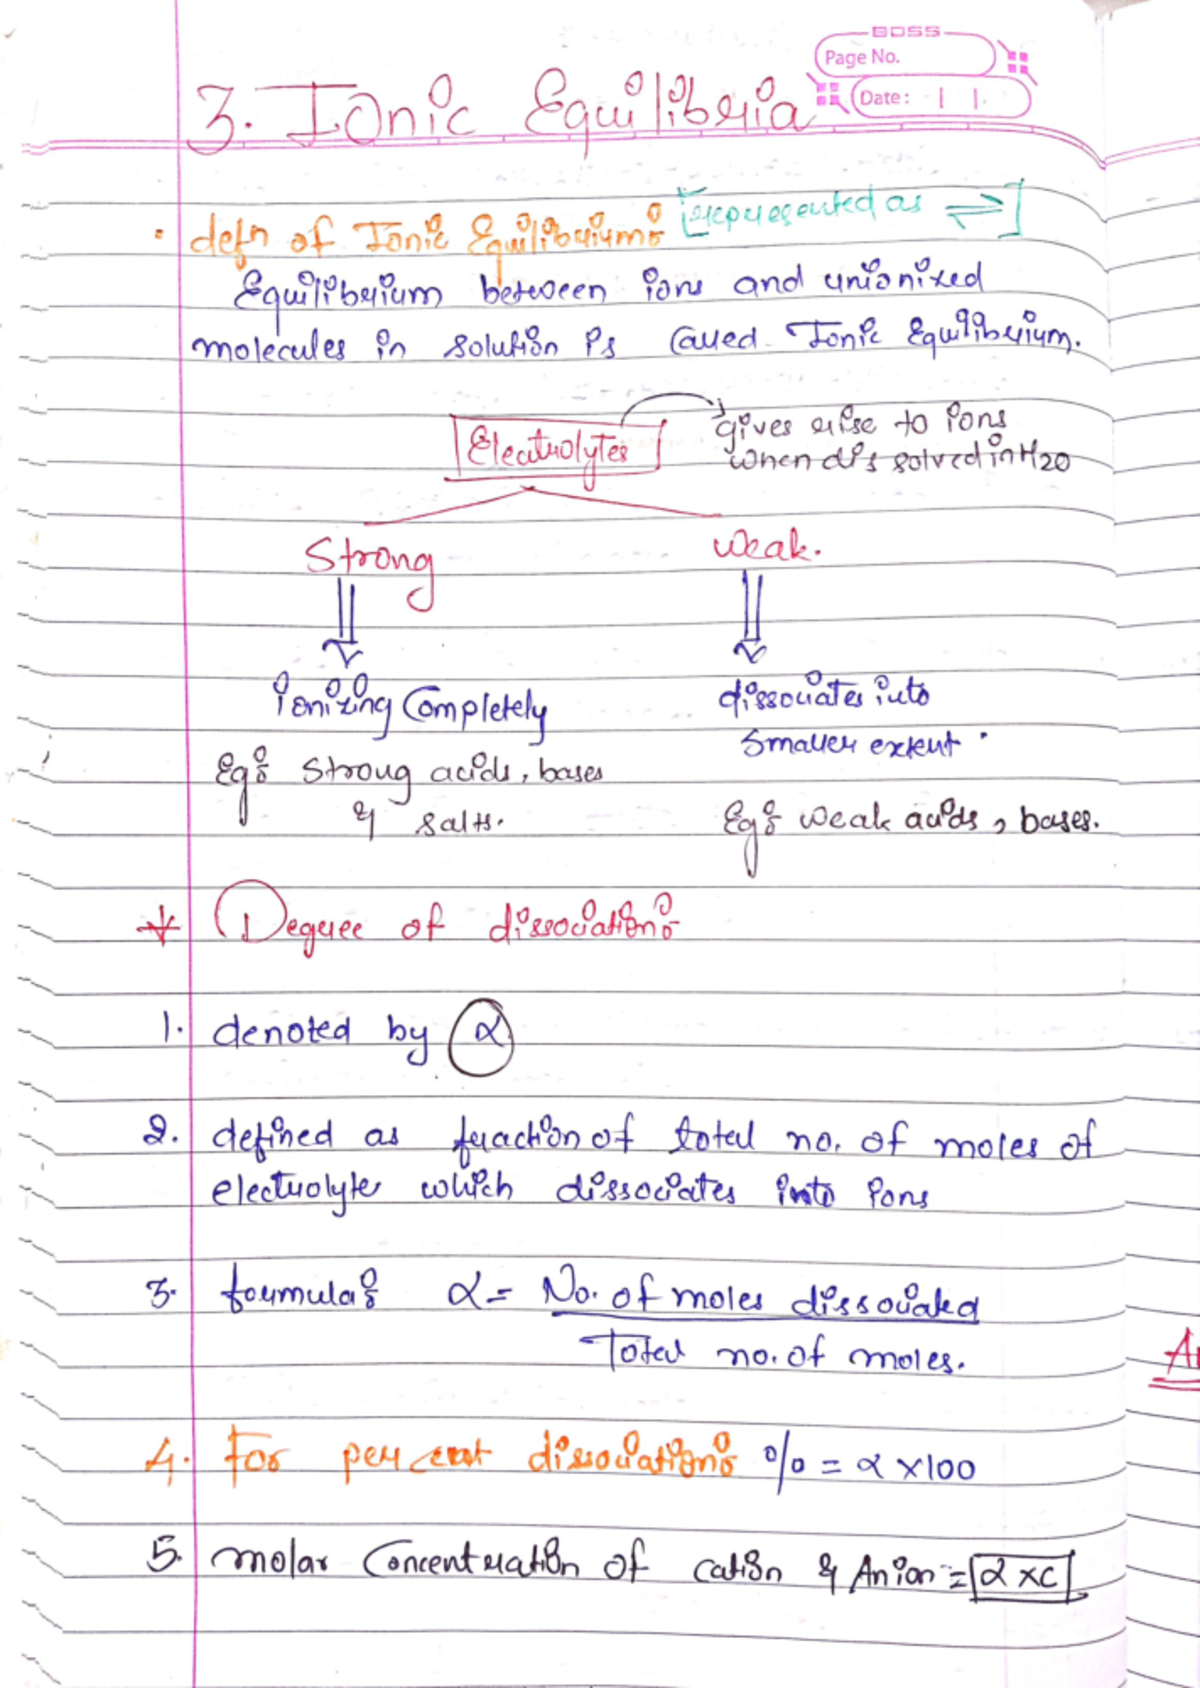 BOSS
Page No.
Date:
3. Ionic Equilibria
• defn of Ionic Equilibrium: [represented as ⇌]
Equilibrium between ions and unionized
molecules in solution is called Ionic Equilibrium.
Electrolytes
gives rise to ions
when dissolved in H2O
Strong
Weak.
ionizing Completely
dissociates into
smaller extent.
Eg: Strong acids, bases
& salts.
Eg: weak acids, bases.
* Degree of dissociation:
1. denoted by α
2. defined as fraction of total no. of moles of
electrolyte which dissociates into ions
3. formula: α = No. of moles dissociated
Total no. of moles.
4. For percent dissociation: % = α x 100
5. molar Concentration of cation & Anion = α x C